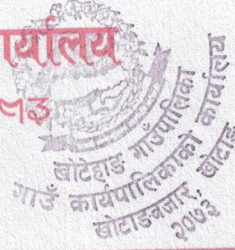 र्यालय
९३
खोटेहाङ गाउँपालिका
गाउँ कार्यपालिकाको कार्यालय
खोटाङबजार, खोटाङ
२०७३